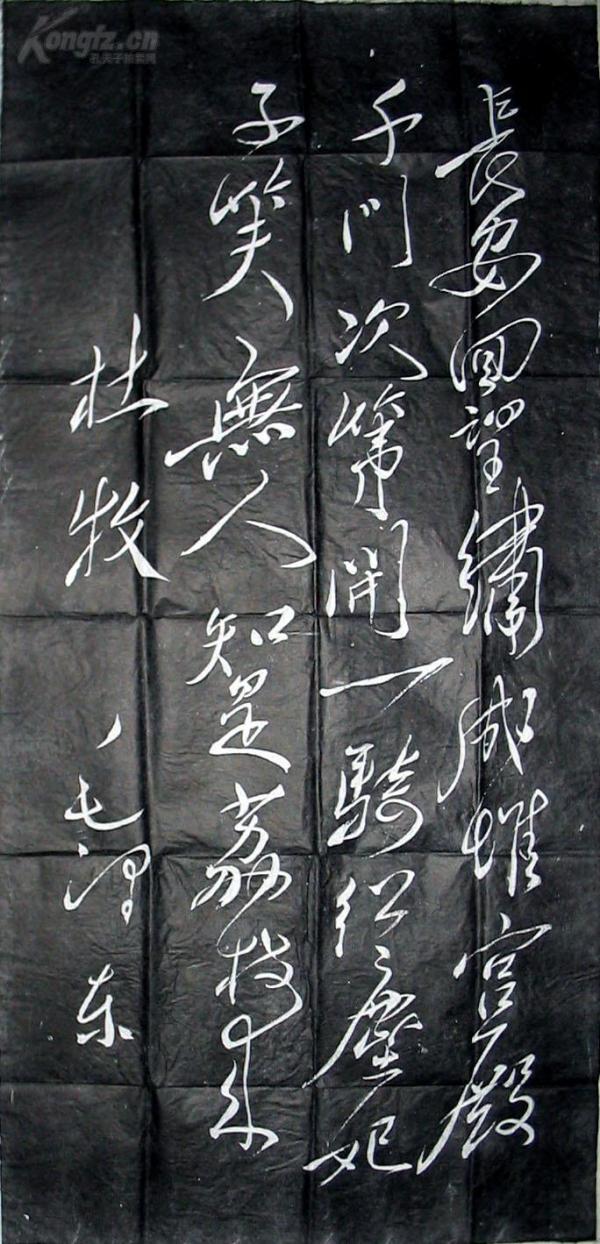 Kongfz.cn
孔夫子拍卖网
長安回望繡成堆宫殿
千门次第開一騎红塵妃
子笑無人知是荔枝来
杜牧
毛澤东